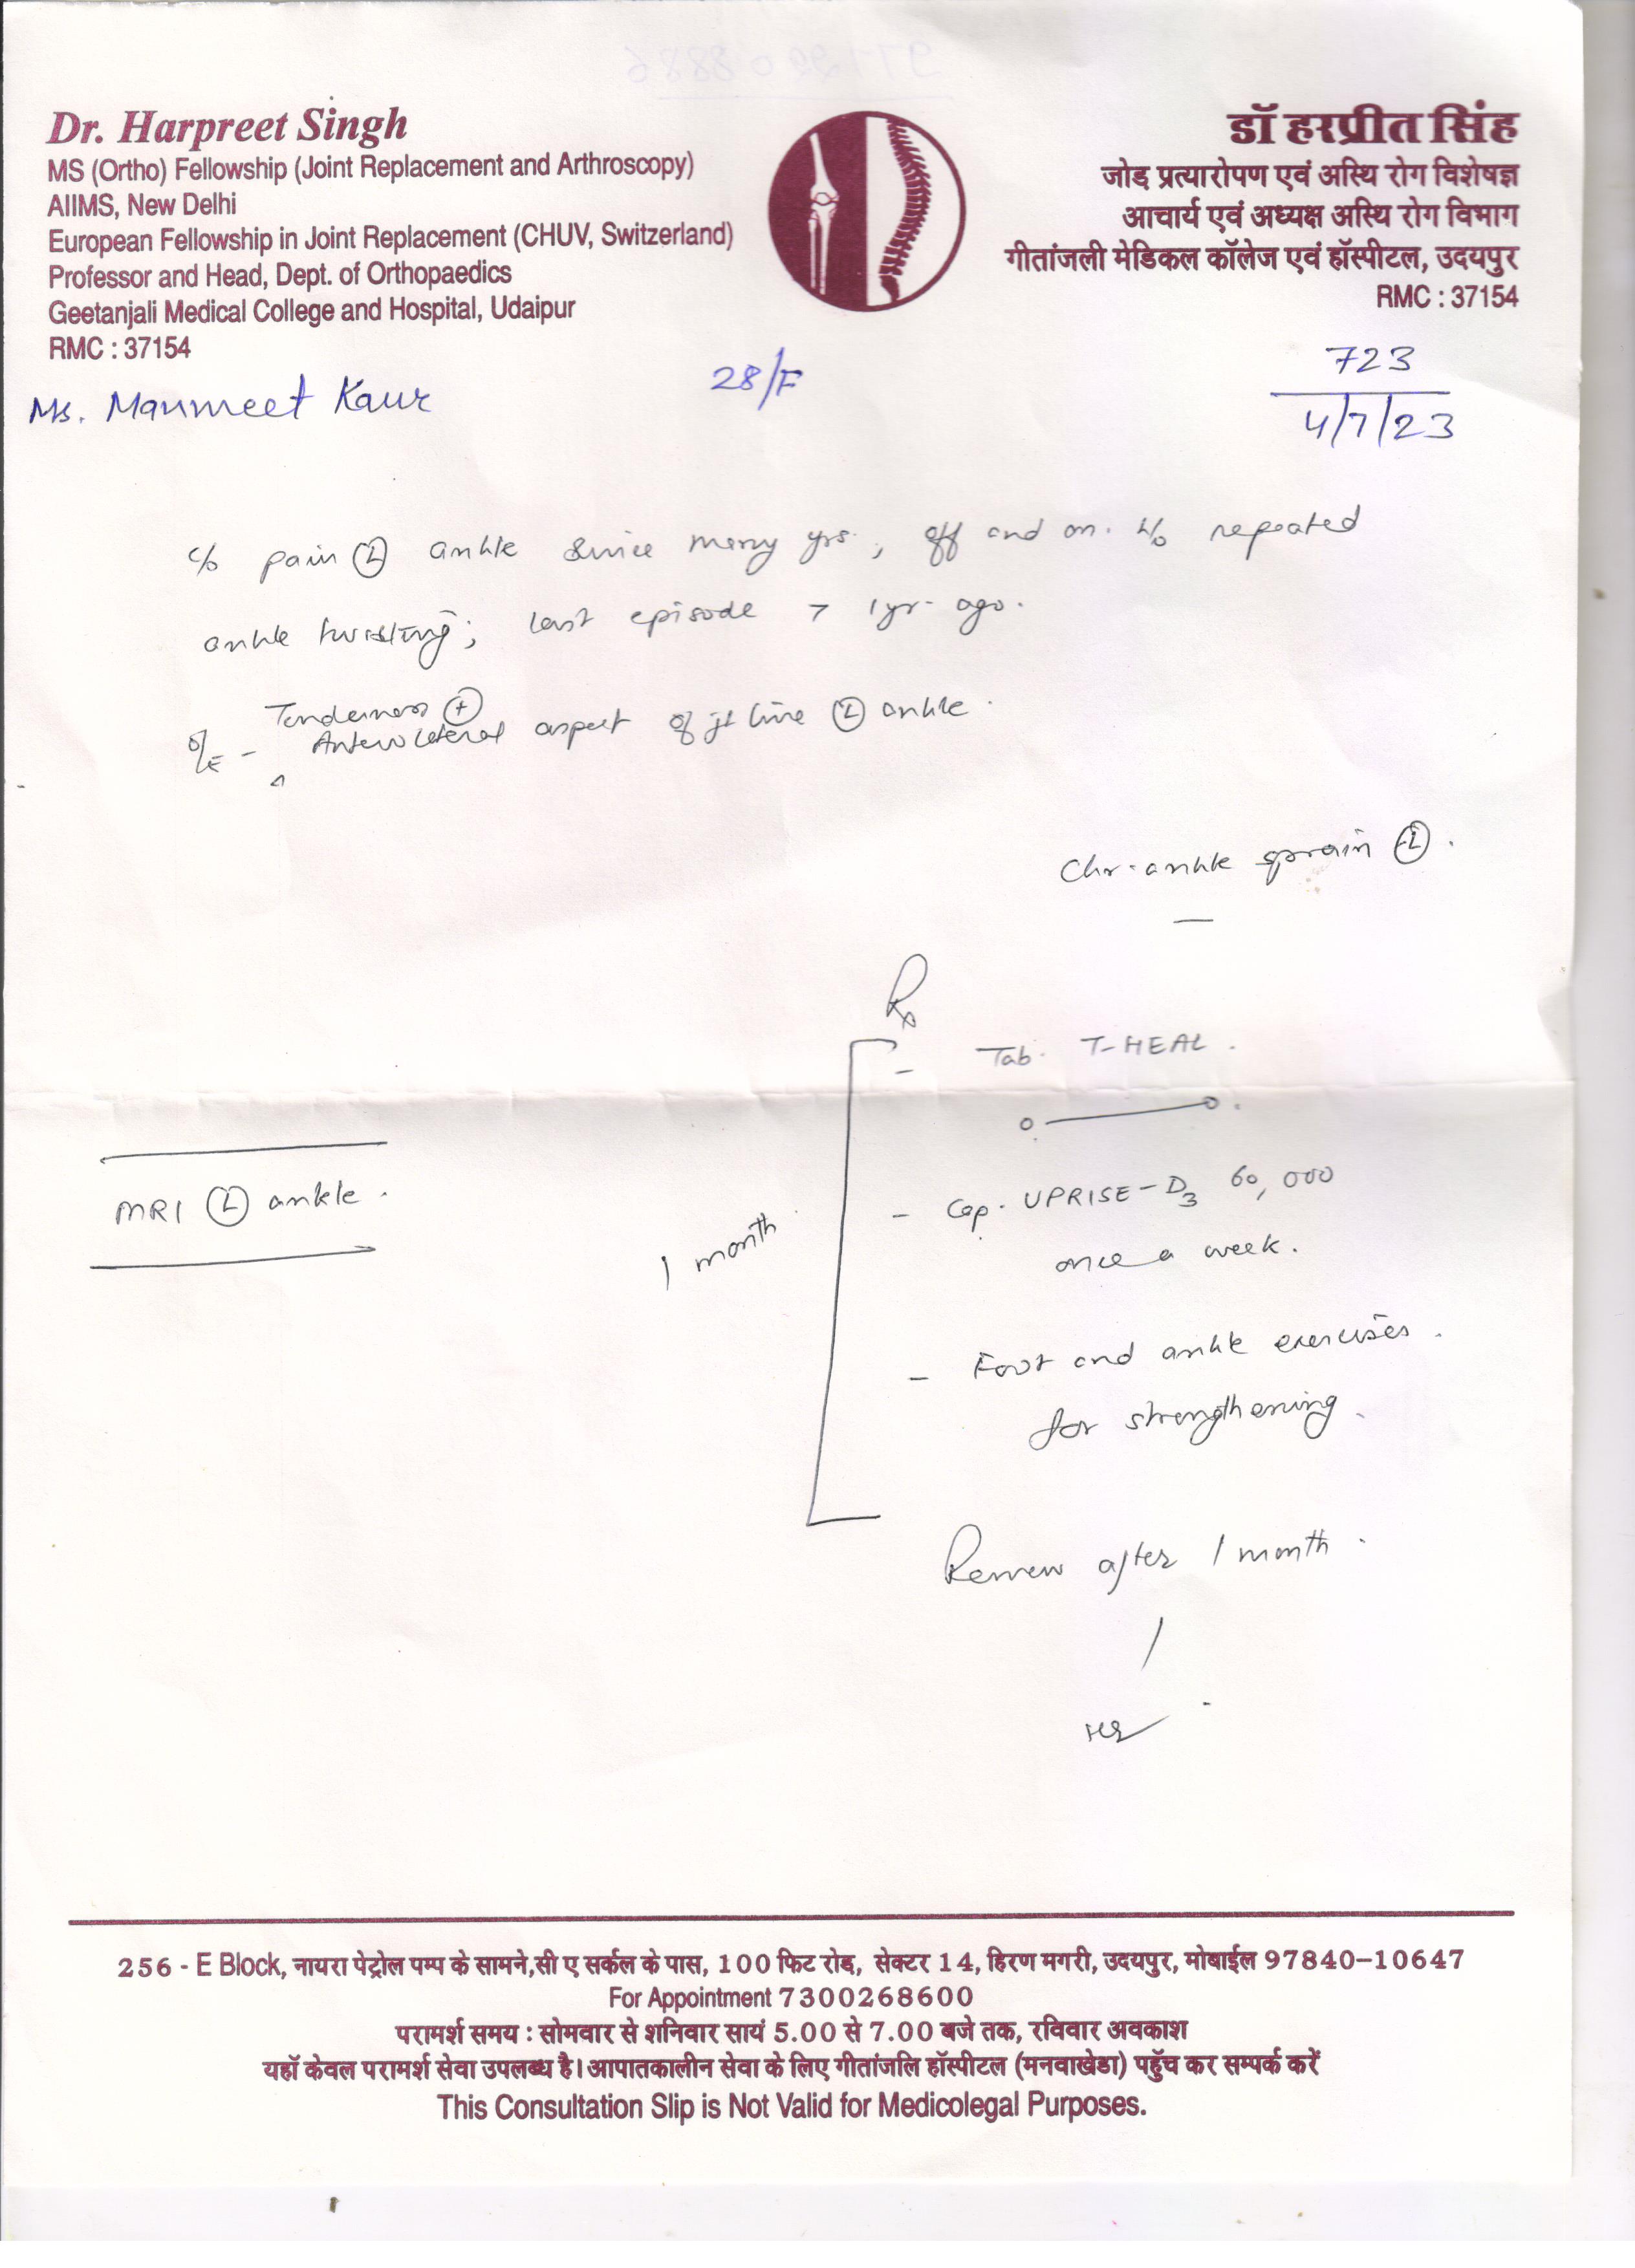 Dr. Harpreet Singh
MS (Ortho) Fellowship (Joint Replacement and Arthroscopy)
AIIMS, New Delhi
European Fellowship in Joint Replacement (CHUV, Switzerland)
Professor and Head, Dept. of Orthopaedics
Geetanjali Medical College and Hospital, Udaipur
RMC : 37154
डॉ हरप्रीत सिंह
जोड प्रत्यारोपण एवं अस्थि रोग विशेषज्ञ
आचार्य एवं अध्यक्ष अस्थि रोग विभाग
गीतांजली मेडिकल कॉलेज एवं हॉस्पीटल, उदयपुर
RMC : 37154
Ms. Manmeet Kaur
28/F
723
4/7/23
c/o pain Ⓛ ankle since many yrs., off and on. H/o repeated
ankle twisting; last episode > 1yr. ago.
Tenderness ⊕
O/E - Anterolateral aspect of jt line Ⓛ ankle.
Chr. ankle sprain Ⓛ.
Rx
- Tab. T-HEAL.
o — o.
MRI Ⓛ ankle.
1 month
- Cap. UPRISE-D3 60,000
once a week.
- Foot and ankle exercises.
for strengthening.
Review after 1 month.
256 - E Block, नायरा पेट्रोल पम्प के सामने,सी ए सर्कल के पास, 100 फिट रोड, सेक्टर 14, हिरण मगरी, उदयपुर, मोबाईल 97840-10647
For Appointment 7300268600
परामर्श समय : सोमवार से शनिवार सायं 5.00 से 7.00 बजे तक, रविवार अवकाश
यहाॅ केवल परामर्श सेवा उपलब्ध है। आपातकालीन सेवा के लिए गीतांजलि हॉस्पीटल (मनवाखेडा) पहुॅच कर सम्पर्क करें
This Consultation Slip is Not Valid for Medicolegal Purposes.